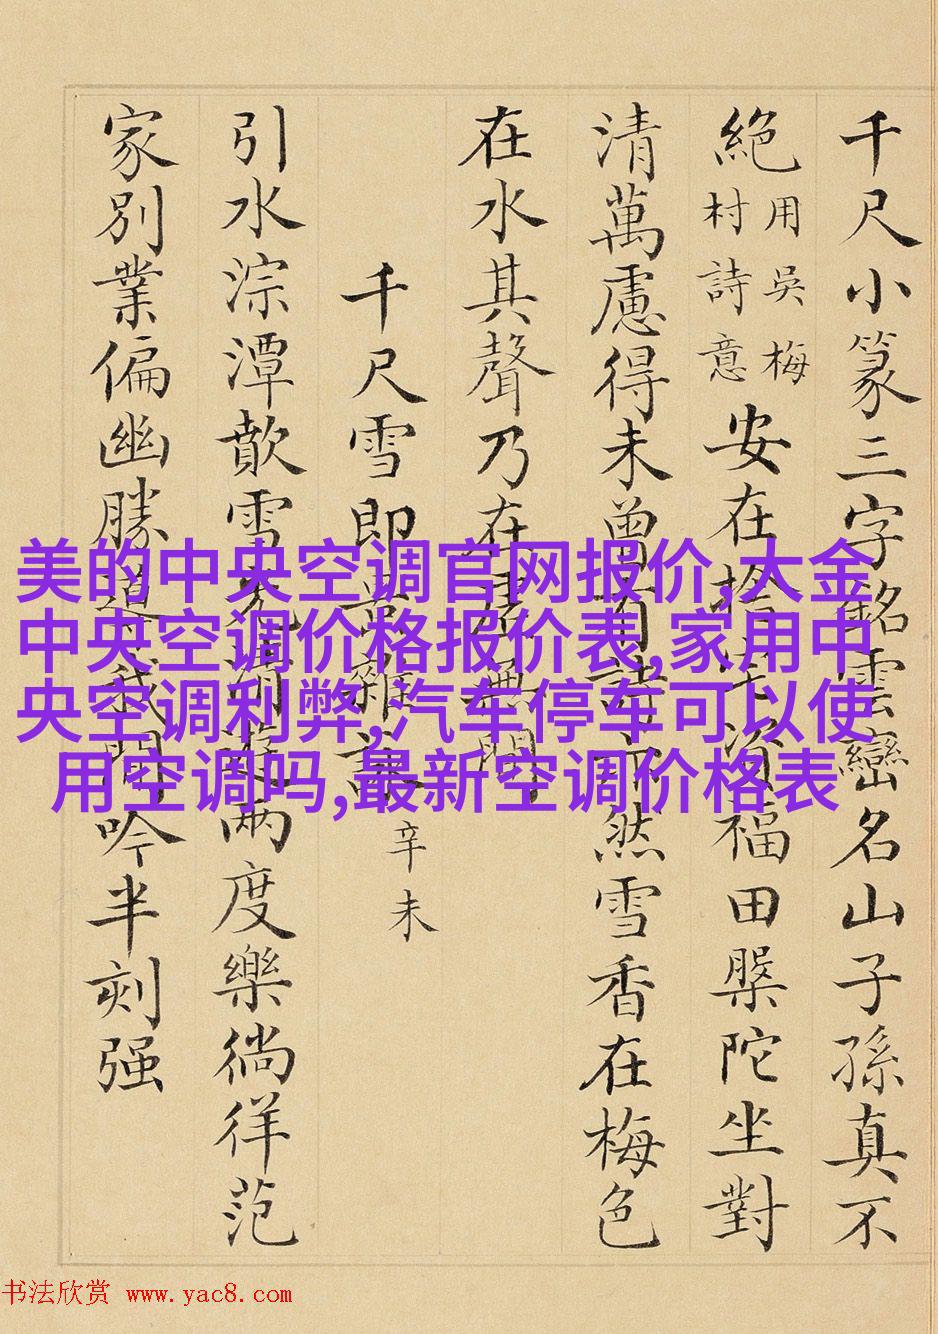 千尺小篆三字銘雲巒名山子孫真不
絕用吳梅村詩意安在捨資福田槃陀坐對
清萬慮得未曾有詩然雪香在梅色
在水其聲乃在無間
千尺雪即景雜詠辛未
引水淙潭歕雪兩度樂徜徉范
家別業偏幽勝吟半刻强
美的中央空调官网报价,大金
中央空调价格报价表,家用中
央空调利弊,汽车停车可以使
用空调吗,最新空调价格表
书法欣赏 www.yac8.com